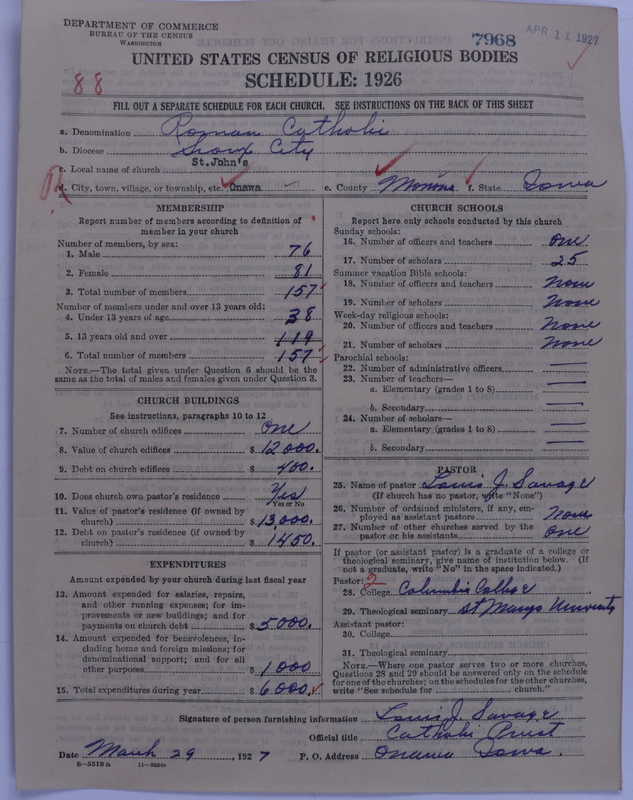 DEPARTMENT OF COMMERCE
BUREAU OF THE CENSUS
WASHINGTON
7968
APR 11 1927
UNITED STATES CENSUS OF RELIGIOUS BODIES
SCHEDULE: 1926
88
FILL OUT A SEPARATE SCHEDULE FOR EACH CHURCH. SEE INSTRUCTIONS ON THE BACK OF THIS SHEET
a. Denomination Roman Catholic
b. Diocese Sioux City
c. Local name of church St.John's
d. City, town, village, or township, etc. Onawa e. County Monona f. State Iowa
MEMBERSHIP
Report number of members according to definition of
member in your church
Number of members, by sex:
1. Male 76
2. Female 81
3. Total number of members 157
Number of members under and over 13 years old:
4. Under 13 years of age 38
5. 13 years old and over 119
6. Total number of members 157
NOTE.—The total given under Question 6 should be
same as the total of males and females given under Question 3.
CHURCH BUILDINGS
See instructions, paragraphs 10 to 12
7. Number of church edifices One
8. Value of church edifices $ 12000.
9. Debt on church edifices $ 400.
10. Does church own pastor's residence Yes
Yes or No
11. Value of pastor's residence (if owned by
church) $ 13,000.
12. Debt on pastor's residence (if owned by
church) $ 1450.
EXPENDITURES
Amount expended by your church during last fiscal year
13. Amount expended for salaries, repairs,
and other running expenses; for im-
provements or new buildings; and for
payments on church debt $ 5000.
14. Amount expended for benevolences, in-
cluding home and foreign missions; for
denominational support; and for all
other purposes $ 1000
15. Total expenditures during year $ 6000.
CHURCH SCHOOLS
Report here only schools conducted by this church
Sunday schools:
16. Number of officers and teachers one
17. Number of scholars 25
Summer vacation Bible schools:
18. Number of officers and teachers None
19. Number of scholars None
Week-day religious schools:
20. Number of officers and teachers None
21. Number of scholars None
Parochial schools:
22. Number of administrative officers
23. Number of teachers—
a. Elementary (grades 1 to 8)
b. Secondary
24. Number of scholars—
a. Elementary (grades 1 to 8)
b. Secondary
PASTOR
25. Name of pastor Louis J. Savage
(If church has no pastor, write "None")
26. Number of ordained ministers, if any, em-
ployed as assistant pastors None
27. Number of other churches served by the
pastor or his assistants one
If pastor (or assistant pastor) is a graduate of a college or
theological seminary, give name of institution below. (If
not a graduate, write "No" in the space indicated.)
Pastor: 2
28. College Columbia College
29. Theological seminary St Marys University
Assistant pastor:
30. College
31. Theological seminary
NOTE.—Where one pastor serves two or more churches,
Questions 28 and 29 should be answered only on the schedule
for one of the churches; on the schedules for the other churches,
write "See schedule for church."
Signature of person furnishing information Louis J. Savage
Official title Catholic Priest
Date March 29, 1927 P. O. Address Onawa Iowa.